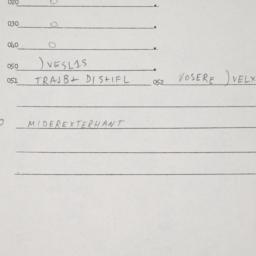 020 O
030 O
040 O
050 )VESL1S
051 TRAJB+ DISTIFL 052 VOSERE )VELX
MIDEREXTERHANT